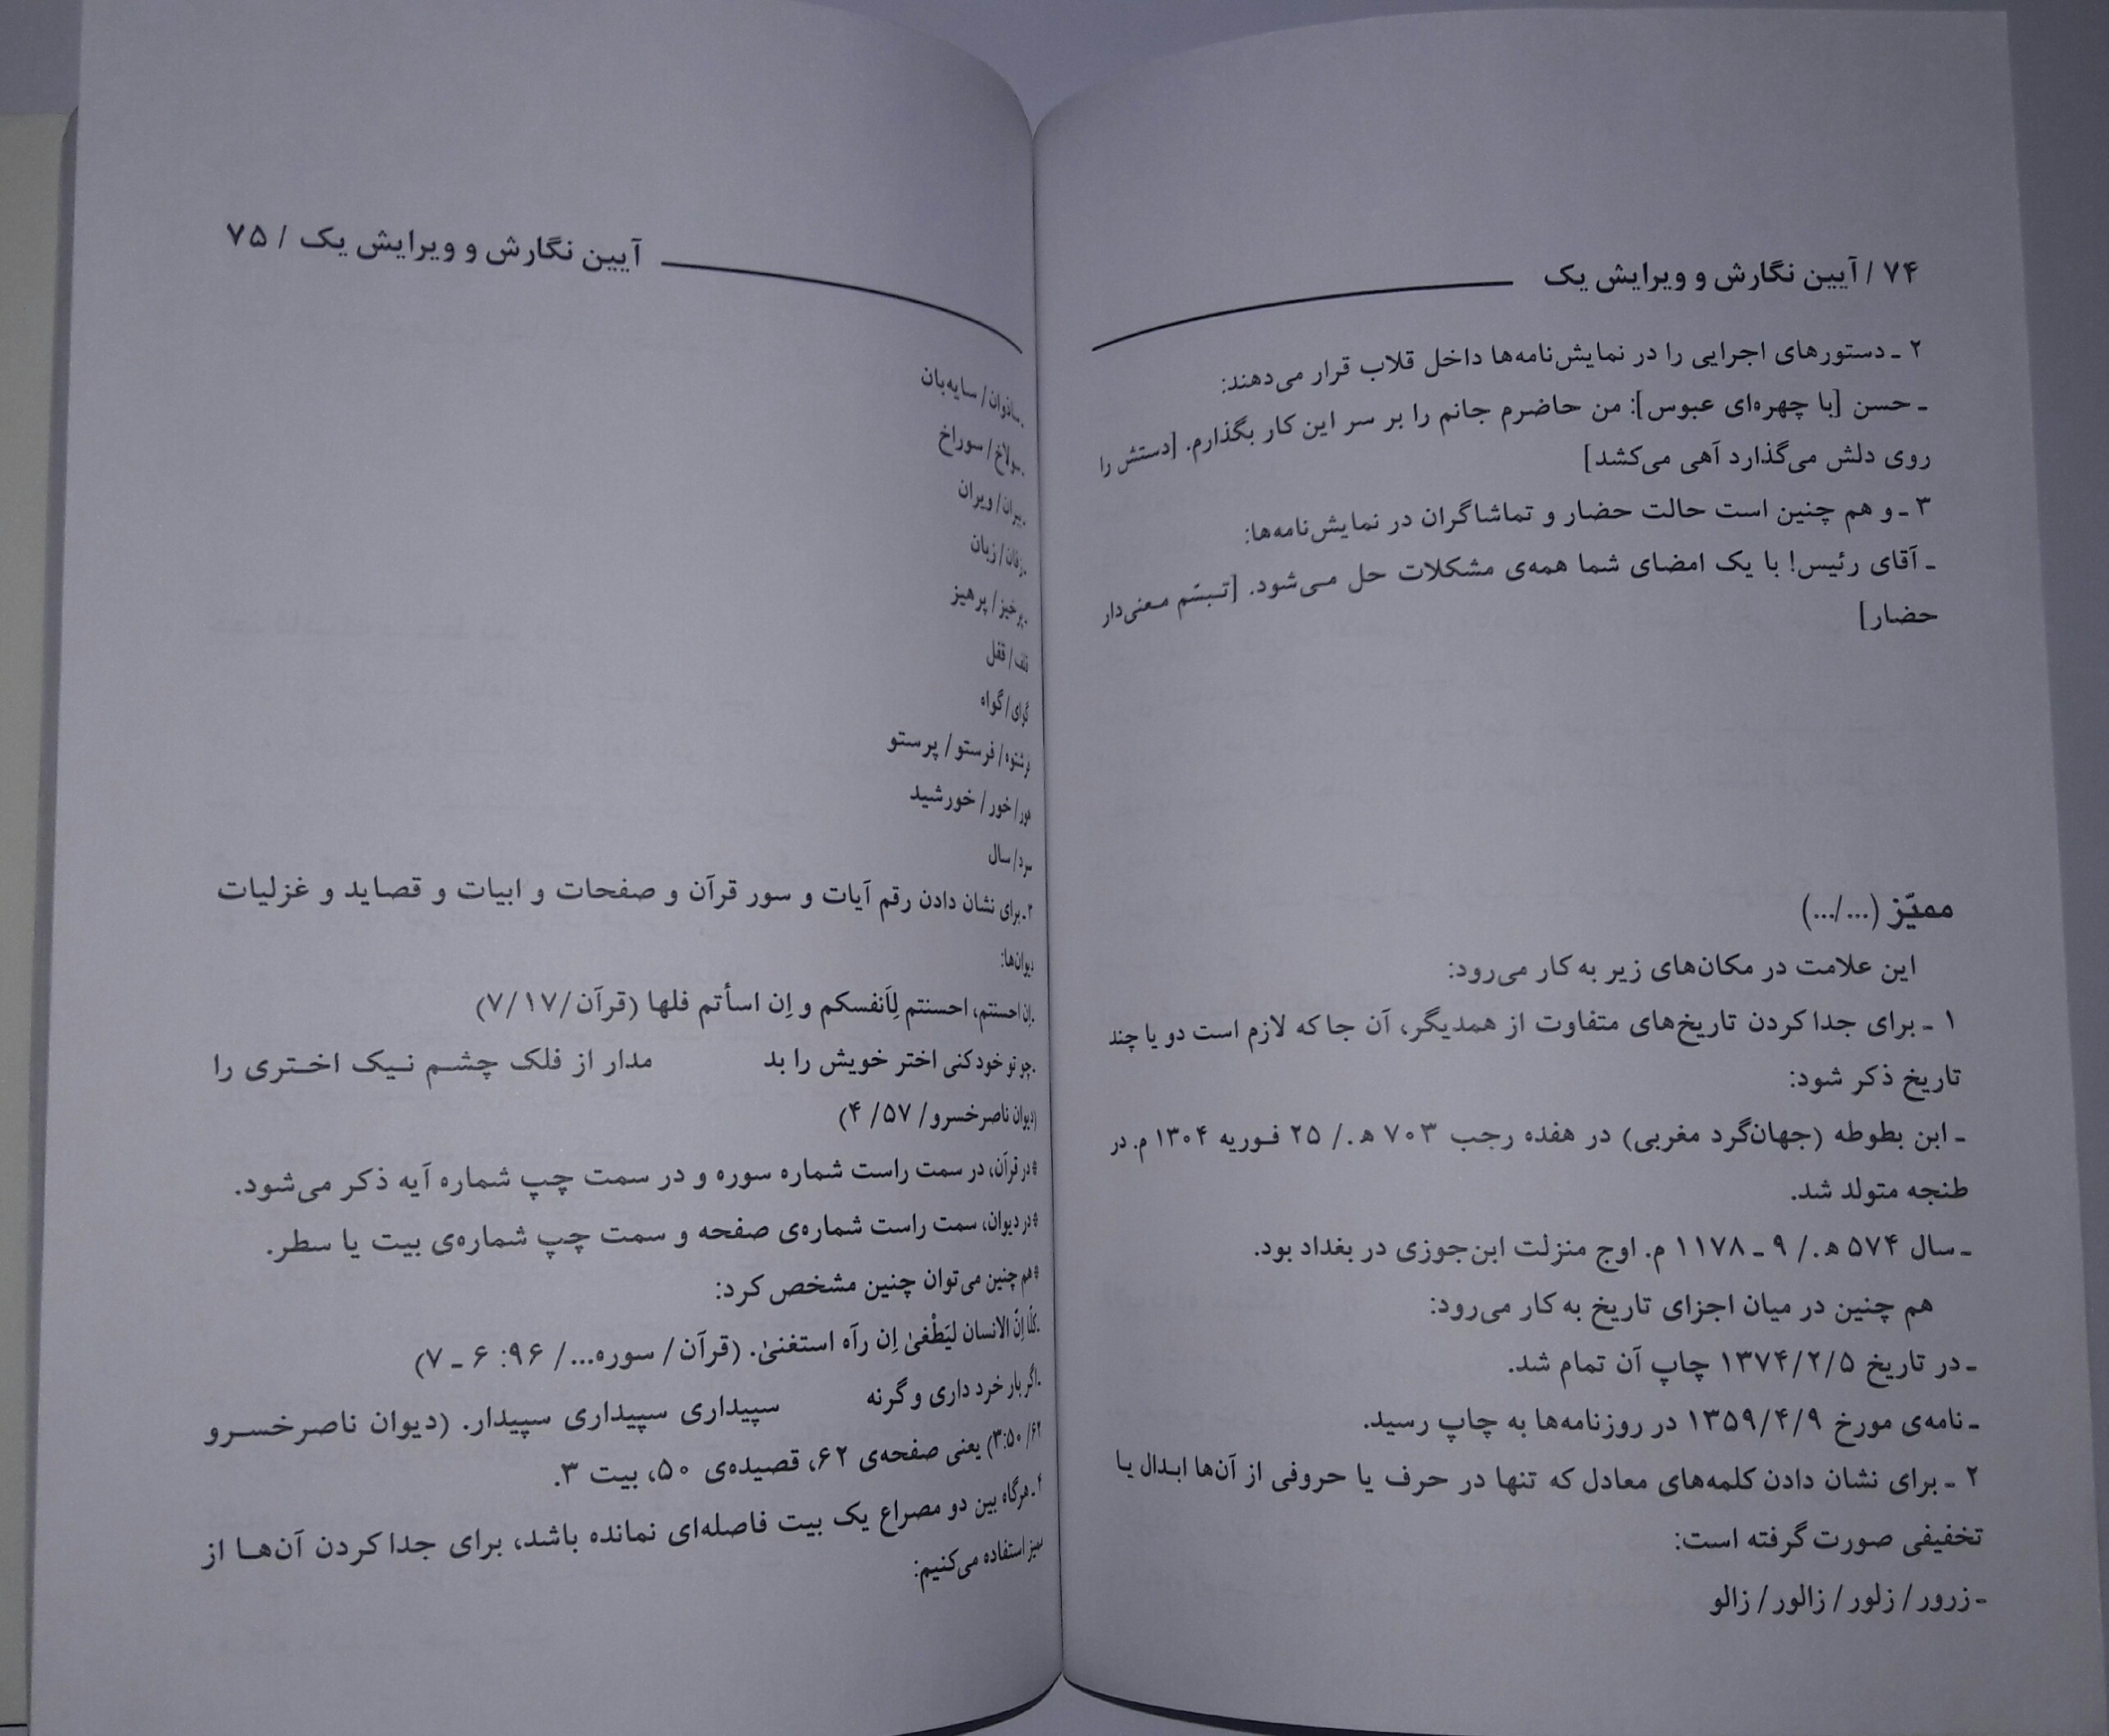 ۷۴ / آیین نگارش و ویرایش یک
۲ ـ دستورهای اجرایی را در نمایش‌نامه‌ها داخل قلاب قرار می‌دهند:
ـ حسن [با چهره‌ای عبوس]: من حاضرم جانم را بر سر این کار بگذارم. [دستش را
روی دلش می‌گذارد آهی می‌کشد]
۳ ـ و هم چنین است حالت حضار و تماشاگران در نمایش‌نامه‌ها:
ـ آقای رئیس! با یک امضای شما همه‌ی مشکلات حل می‌شود. [تبسّم معنی‌دار
حضار]
ممیّز (.../...)
این علامت در مکان‌های زیر به کار می‌رود:
۱ ـ برای جدا کردن تاریخ‌های متفاوت از همدیگر، آن جا که لازم است دو یا چند
تاریخ ذکر شود:
ـ ابن بطوطه (جهان‌گرد مغربی) در هفده رجب ۷۰۳ ه‍./ ۲۵ فوریه ۱۳۰۴ م. در
طنجه متولد شد.
ـ سال ۵۷۴ ه‍./ ۹ ـ ۱۱۷۸ م. اوج منزلت ابن‌جوزی در بغداد بود.
هم چنین در میان اجزای تاریخ به کار می‌رود:
ـ در تاریخ ۱۳۷۴/۲/۵ چاپ آن تمام شد.
ـ نامه‌ی مورخ ۱۳۵۹/۴/۹ در روزنامه‌ها به چاپ رسید.
۲ ـ برای نشان دادن کلمه‌های معادل که تنها در حرف یا حروفی از آن‌ها ابدال یا
تخفیفی صورت گرفته است:
ـ زرور / زلور / زالور / زالو
آیین نگارش و ویرایش یک / ۷۵
ـ سانوان / سایه‌بان
ـ سولاخ / سوراخ
ـ بیران / ویران
ـ زفان / زبان
ـ پرخیز / پرهیز
قلف / قفل
گوای / گواه
فرشتوه / فرستو / پرستو
هور / خور / خورشید
سرد / سال
۳ ـ برای نشان دادن رقم آیات و سور قرآن و صفحات و ابیات و قصاید و غزلیات
دیوان‌ها:
ـ إن احسنتم، احسنتم لِاَنفسکم و اِن اسأتم فلها (قرآن/ ۷/۱۷)
ـ چو تو خود کنی اختر خویش را بد مدار از فلک چشم نیک اختری را
(دیوان ناصرخسرو/ ۵۷/ ۴)
* در قرآن، در سمت راست شماره سوره و در سمت چپ شماره آیه ذکر می‌شود.
* در دیوان، سمت راست شماره‌ی صفحه و سمت چپ شماره‌ی بیت یا سطر.
* هم چنین می‌توان چنین مشخص کرد:
ـ کلّا اِنّ الانسان لیَطْغیٰ اِن رآه استغنیٰ. (قرآن/ سوره.../ ۹۶: ۶ ـ ۷)
ـ اگر بار خرد داری و گرنه سپیداری سپیداری سپیدار. (دیوان ناصرخسرو
۶۲/ ۳:۵۰) یعنی صفحه‌ی ۶۲، قصیده‌ی ۵۰، بیت ۳.
۴ ـ هرگاه بین دو مصراع یک بیت فاصله‌ای نمانده باشد، برای جدا کردن آن‌ها از
ممیز استفاده می‌کنیم: